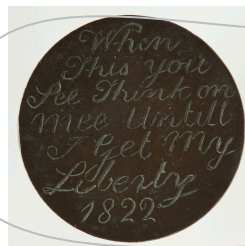 When
This you
See Think on
mee Untill
I Get My
Liberty
1822